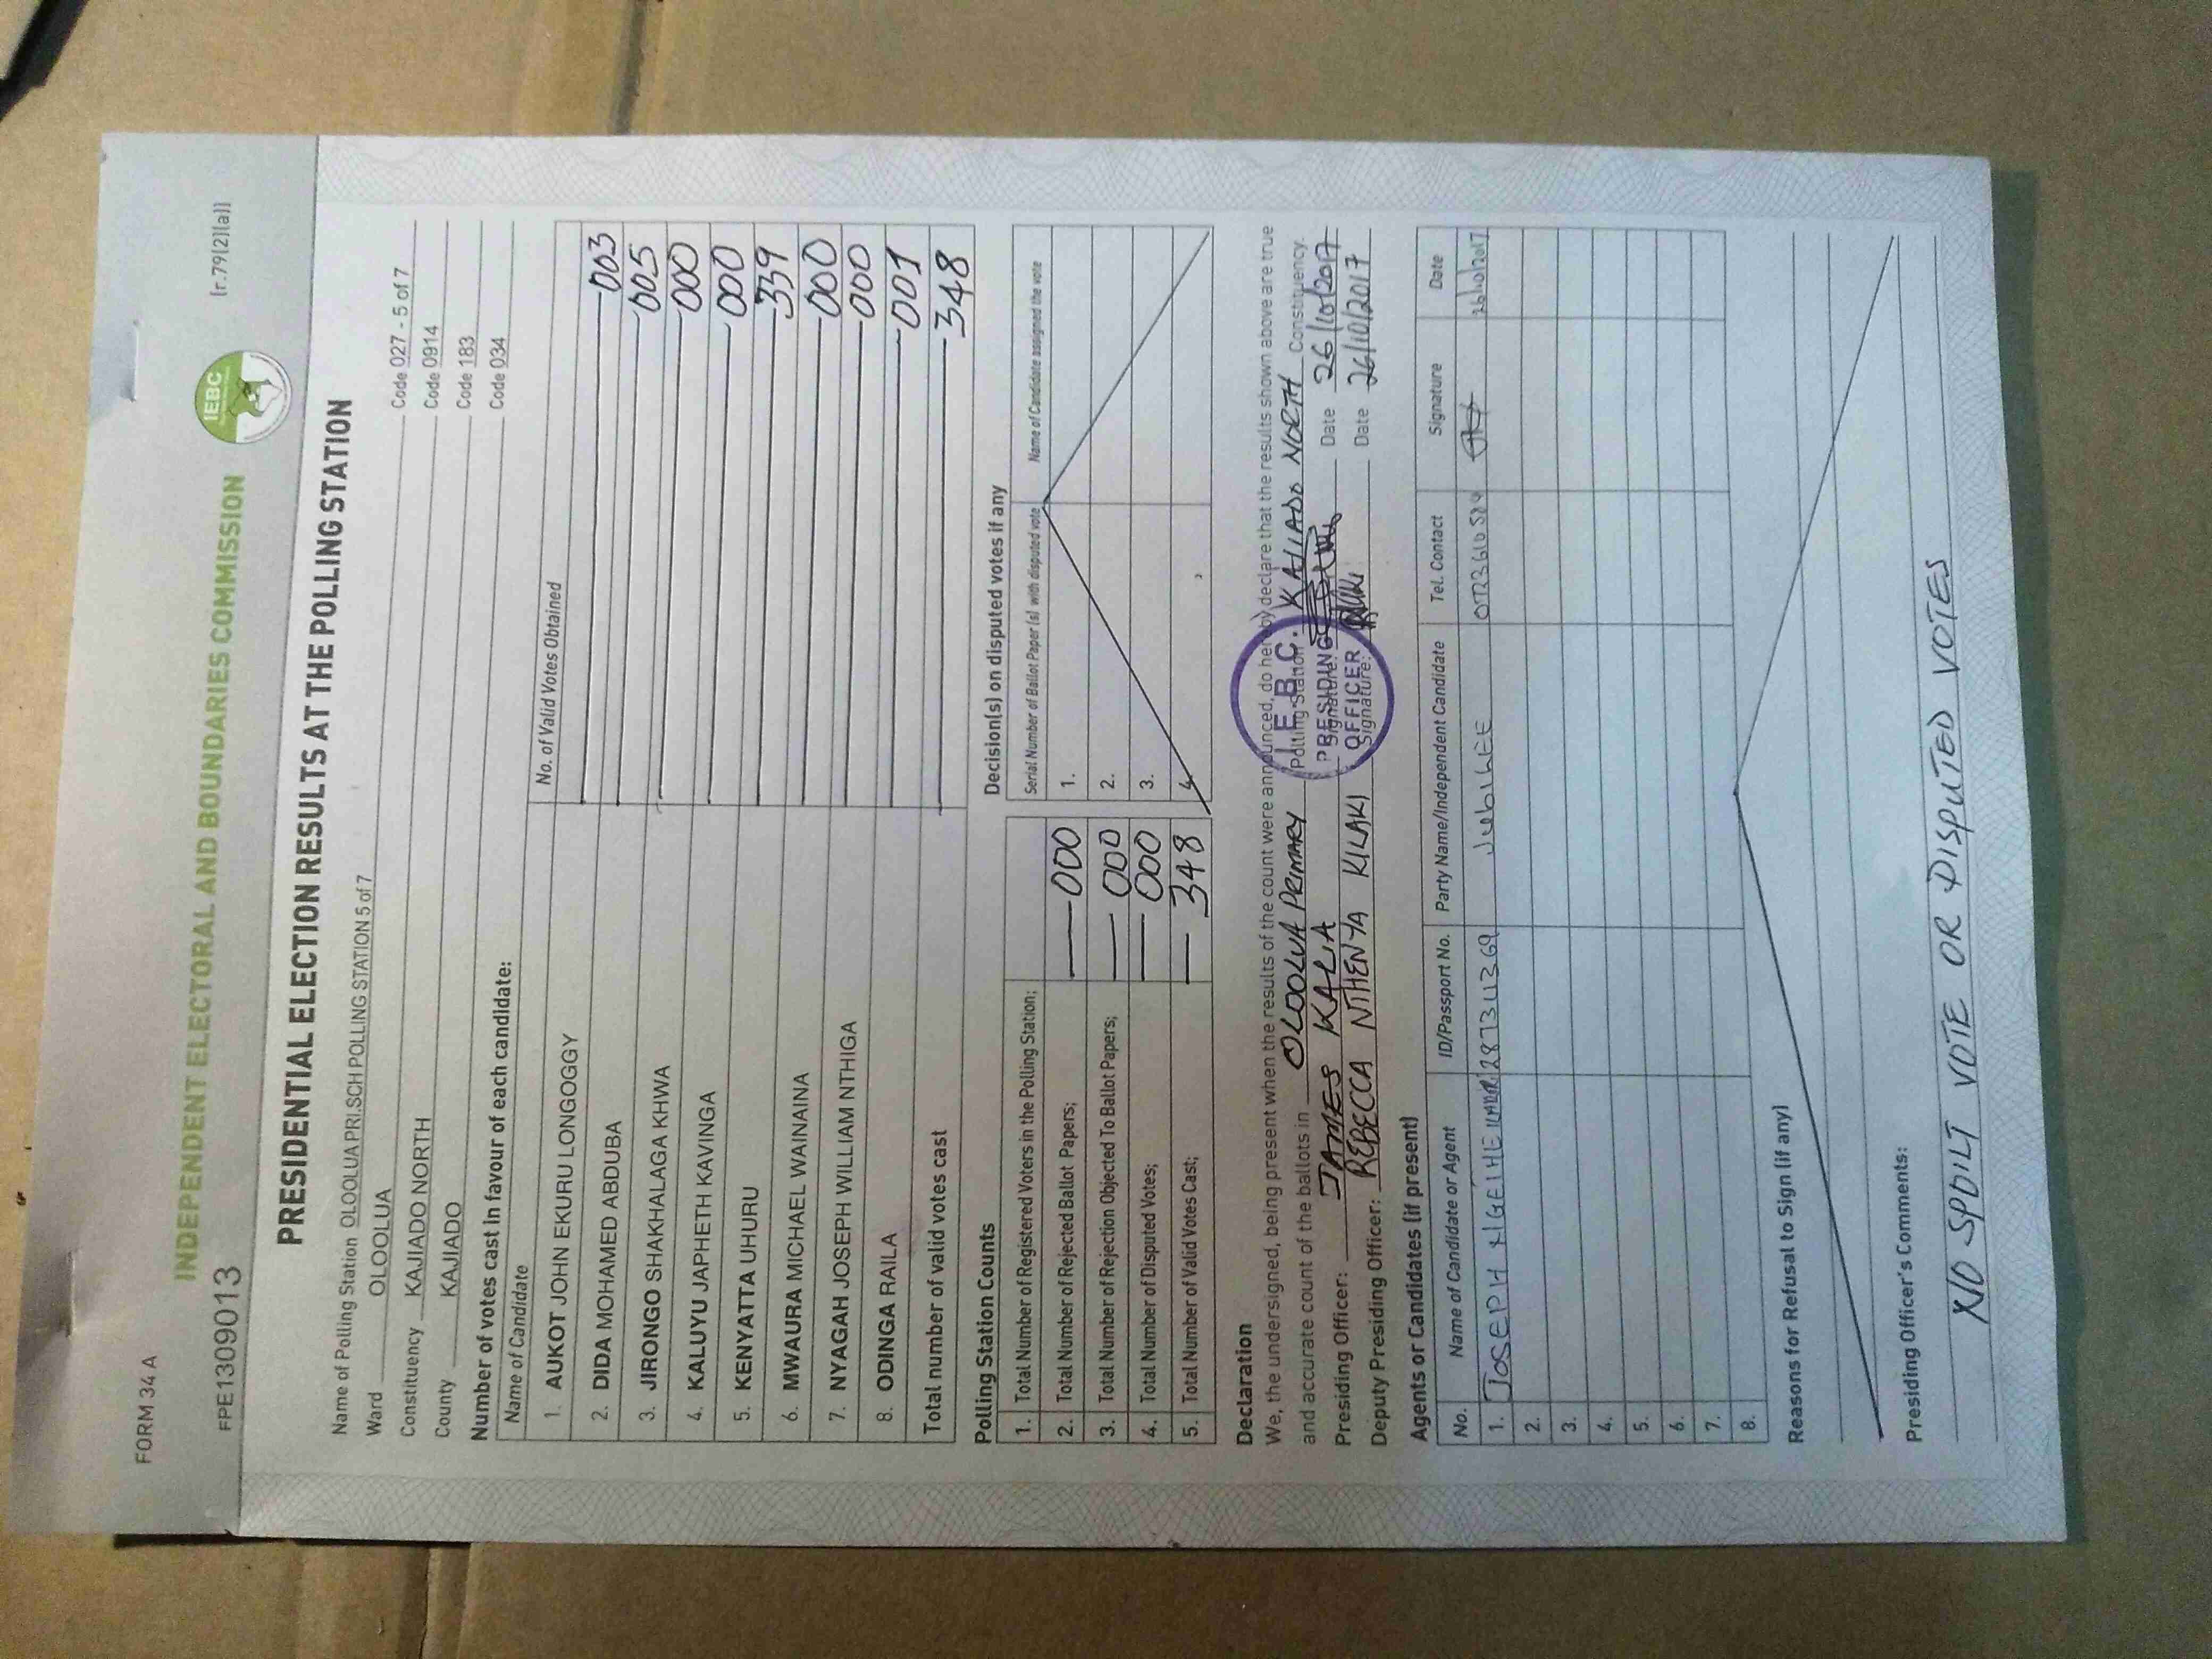 FORM 34 A
INDEPENDENT ELECTORAL AND BOUNDARIES COMMISSION
IEBC
[r.79(2)(a)]
FPE1309013
PRESIDENTIAL ELECTION RESULTS AT THE POLLING STATION
Name of Polling Station OLOOLUA PRI.SCH POLLING STATION 5 of 7 Code 027 - 5 of 7
Ward OLOOLUA Code 0914
Constituency KAJIADO NORTH Code 183
County KAJIADO Code 034
Number of votes cast in favour of each candidate:
Name of Candidate No. of Valid Votes Obtained
1. AUKOT JOHN EKURU LONGOGGY 003
2. DIDA MOHAMED ABDUBA 005
3. JIRONGO SHAKHALAGA KHWA 000
4. KALUYU JAPHETH KAVINGA 000
5. KENYATTA UHURU 339
6. MWAURA MICHAEL WAINAINA 000
7. NYAGAH JOSEPH WILLIAM NTHIGA 000
8. ODINGA RAILA 001
Total number of valid votes cast 348
Polling Station Counts
1. Total Number of Registered Voters in the Polling Station;
2. Total Number of Rejected Ballot Papers; 000
3. Total Number of Rejection Objected To Ballot Papers; 000
4. Total Number of Disputed Votes; 000
5. Total Number of Valid Votes Cast; 348
Decision(s) on disputed votes if any
Serial Number of Ballot Paper (s) with disputed vote Name of Candidate assigned the vote
1.
2.
3.
4.
Declaration
We, the undersigned, being present when the results of the count were announced, do hereby declare that the results shown above are true
and accurate count of the ballots in OLOOLUA PRIMARY Polling Station KAJIADO NORTH Constituency.
Presiding Officer: JAMES KALIA Signature: Date 26/10/2017
Deputy Presiding Officer: REBECCA NTHENYA KILAKI Signature: Date 26/10/2017
I.E.B.C.
PRESIDING
OFFICER
Agents or Candidates (if present)
No. Name of Candidate or Agent ID/Passport No. Party Name/Independent Candidate Tel. Contact Signature Date
1. JOSEPH JUBILEE 26/10/2017
2.
3.
4.
5.
6.
7.
8.
Reasons for Refusal to Sign (if any)
Presiding Officer's Comments:
NO SPOILT VOTE OR DISPUTED VOTES